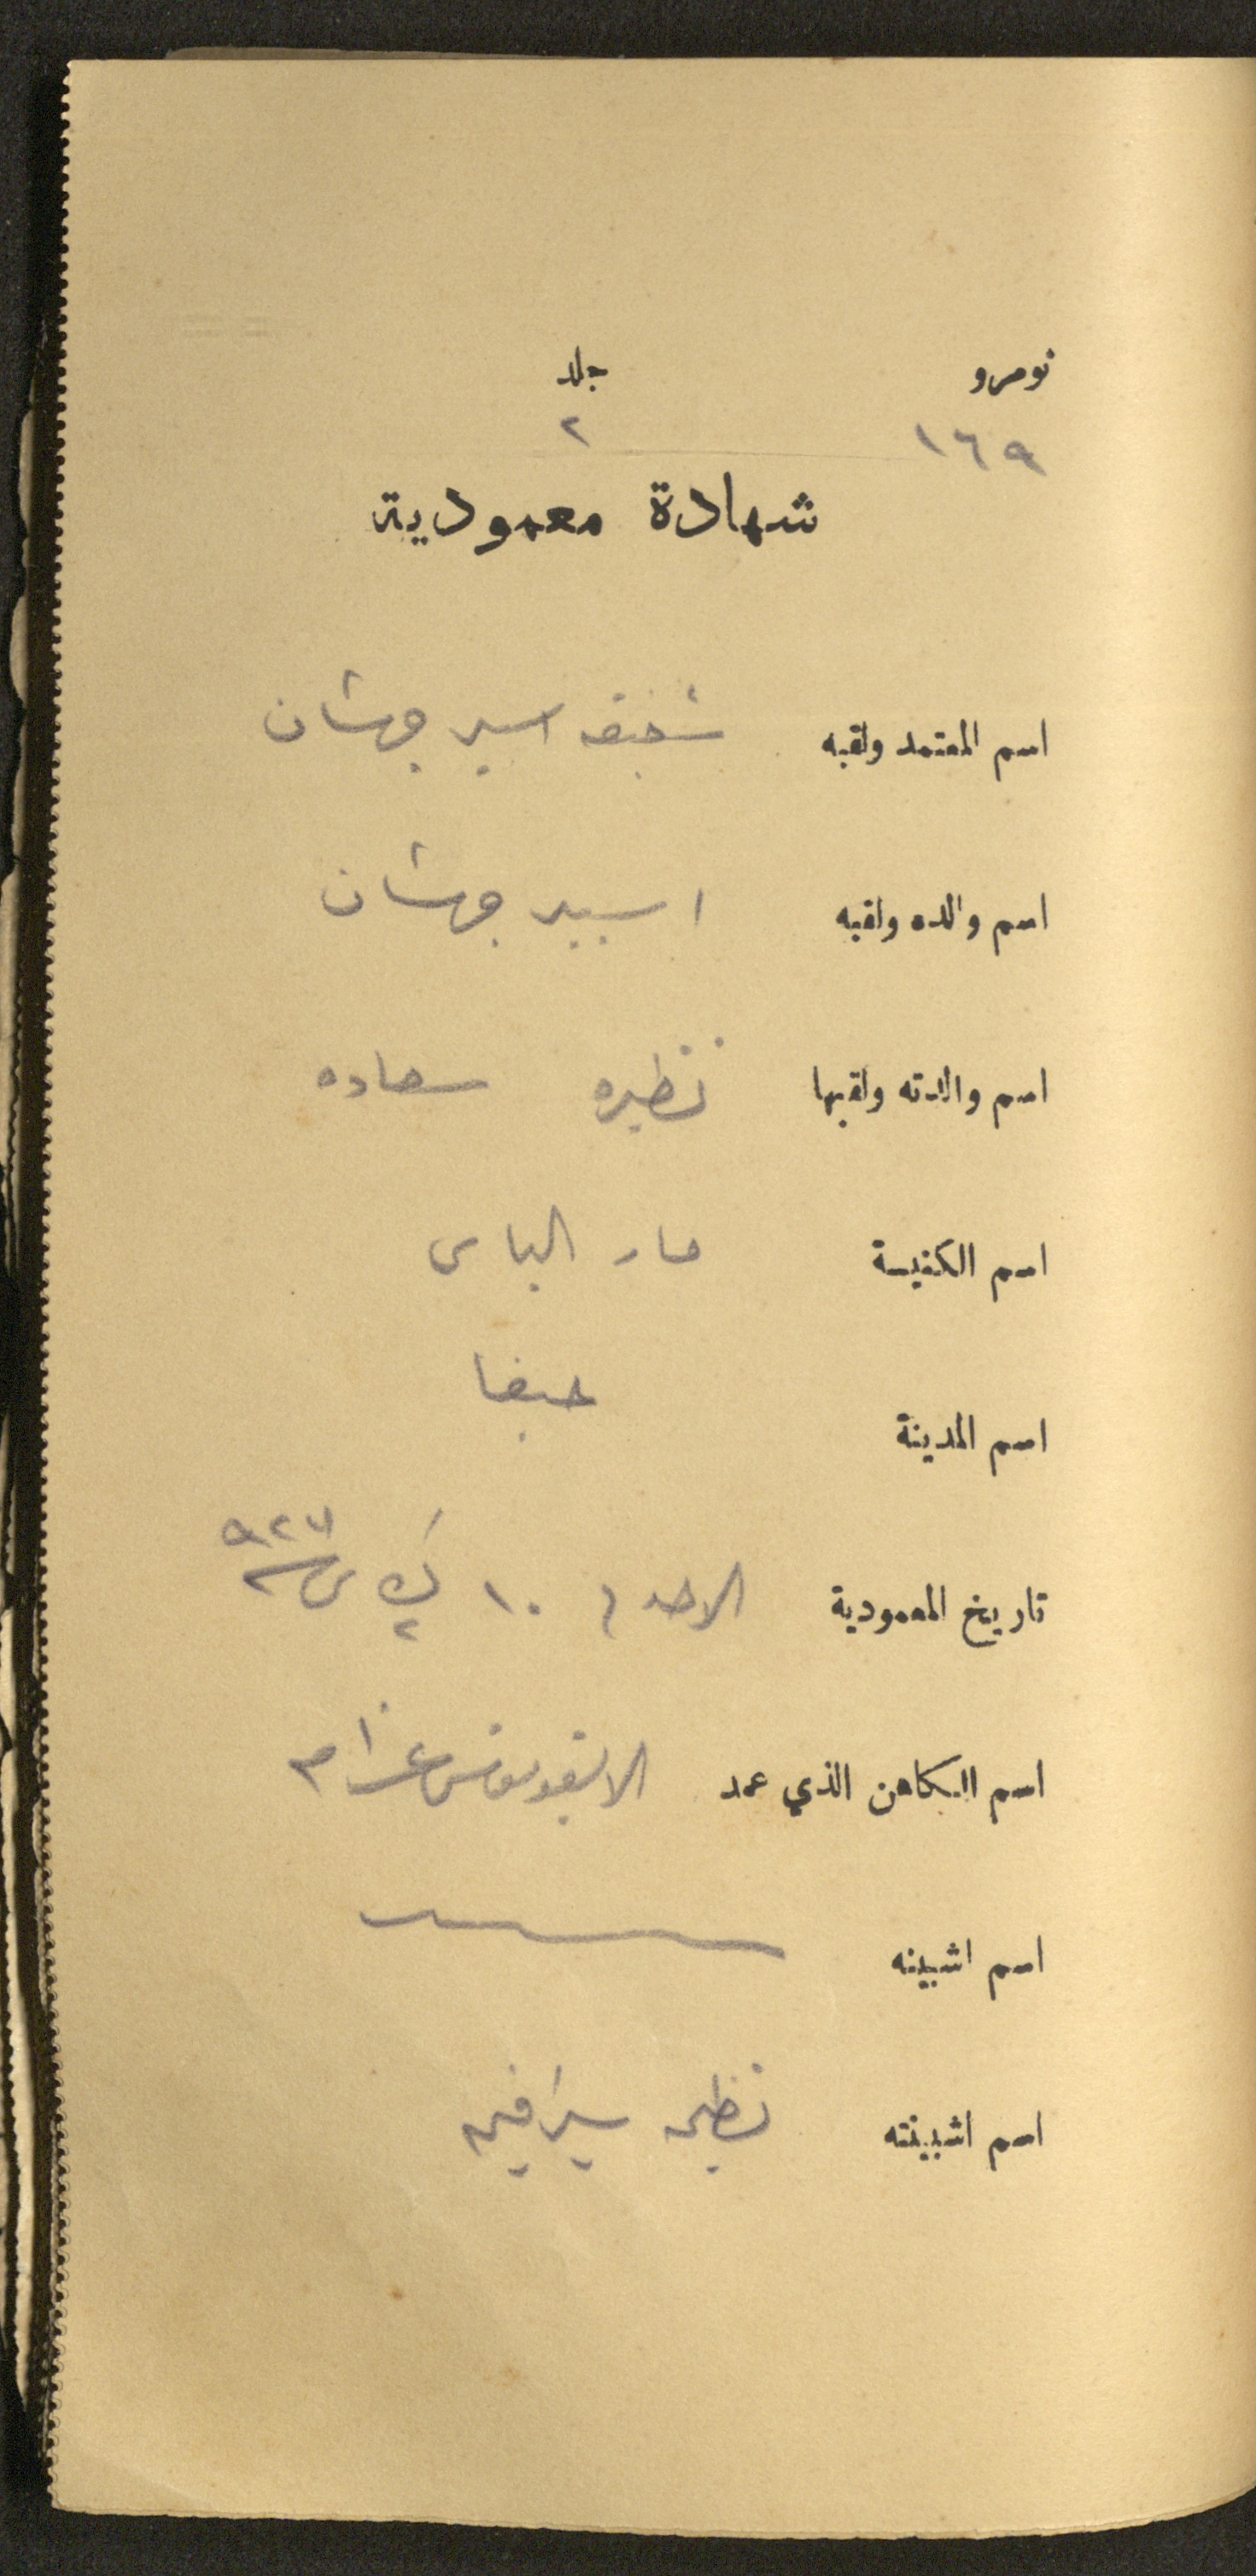 نومرو جلد
١٦٩ ٢
شهادة معمودية
اسم المعتمد ولقبه شفيقه اسبير جهشان
اسم والده ولقبه اسبير جهشان
اسم والدته ولقبها نظيره سعاده
اسم الكنيسة مار الياس
اسم المدينة حيفا
تاريخ المعمودية الاحد ١٠ ك٢ سنة ٩٢٧
اسم الكاهن الذي عمد عزام
اسم اشبينه
اسم اشبينته